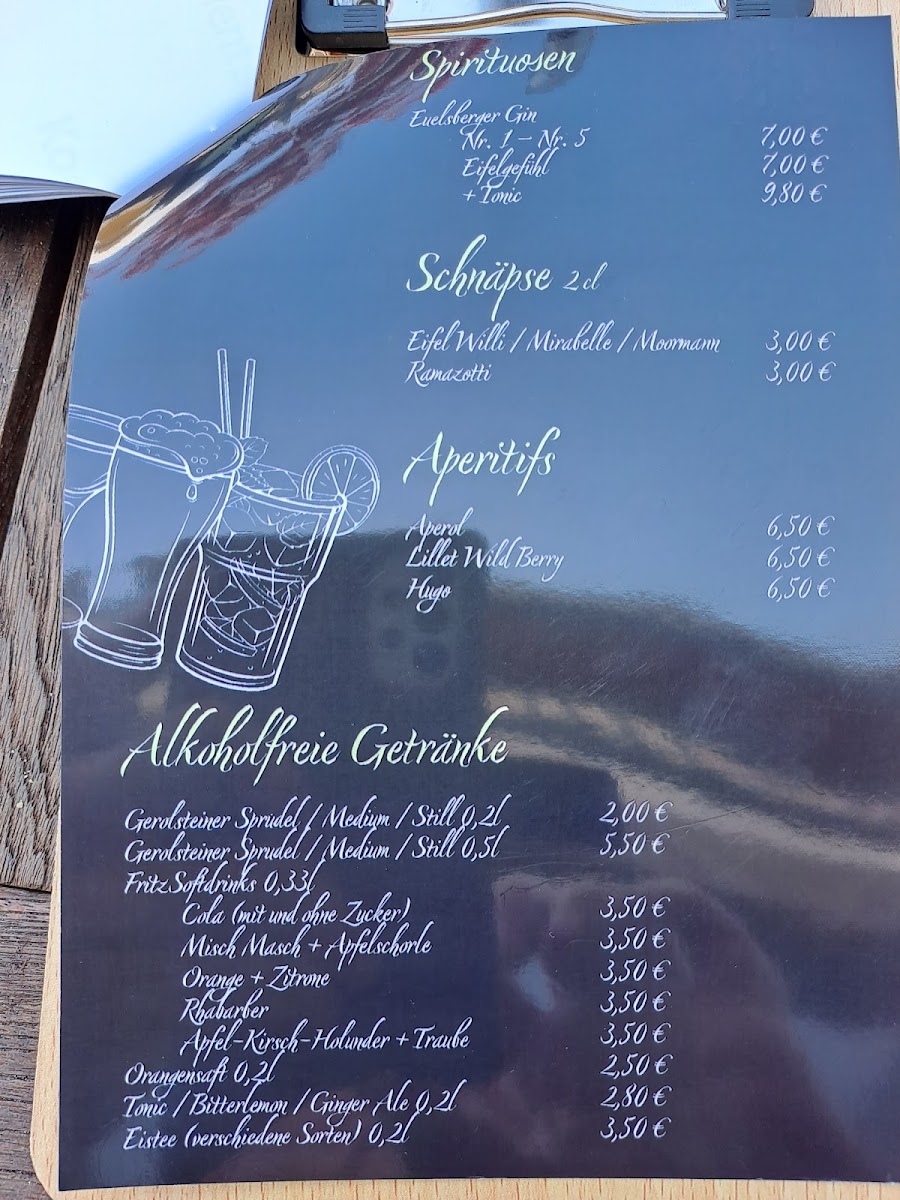 Spirituosen
Euelsberger Gin
Nr. 1 – Nr. 5 7,00 €
Eifelgefühl 7,00 €
+ Tonic 9,80 €
Schnäpse 2 cl
Eifel Willi / Mirabelle / Moormann 3,00 €
Ramazotti 3,00 €
Aperitifs
Aperol 6,50 €
Lillet Wild Berry 6,50 €
Hugo 6,50 €
Alkoholfreie Getränke
Gerolsteiner Sprudel / Medium / Still 0,2l 2,00 €
Gerolsteiner Sprudel / Medium / Still 0,5l 5,50 €
Fritz Softdrinks 0,33l
Cola (mit und ohne Zucker) 3,50 €
Misch Masch + Apfelschorle 3,50 €
Orange + Zitrone 3,50 €
Rhabarber 3,50 €
Apfel-Kirsch-Holunder + Traube 3,50 €
Orangensaft 0,2l 2,50 €
Tonic / Bitterlemon / Ginger Ale 0,2l 2,80 €
Eistee (verschiedene Sorten) 0,2l 3,50 €